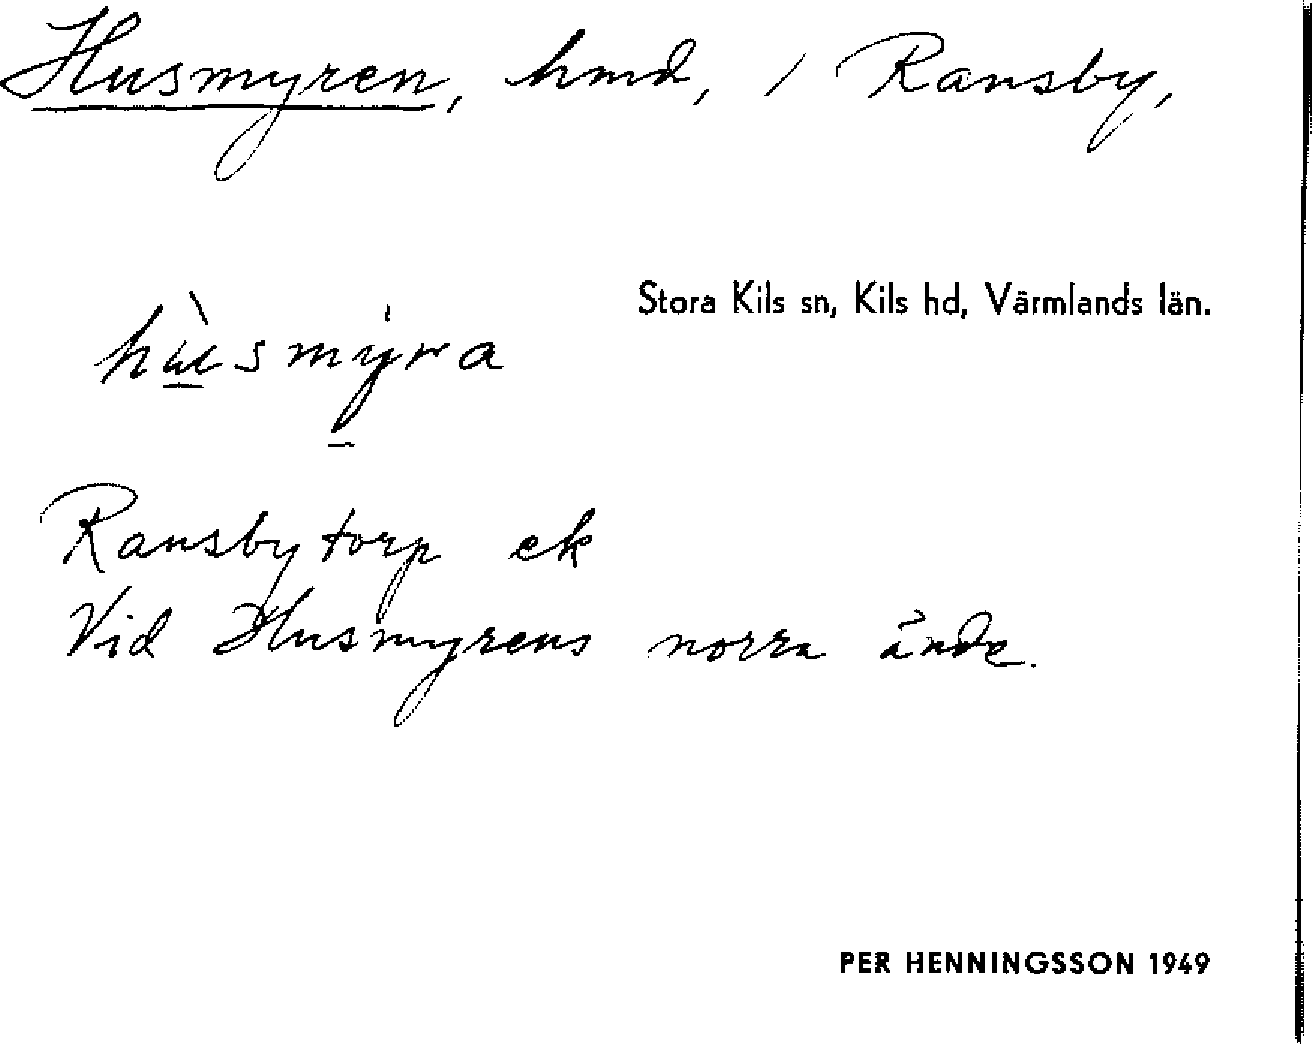 Husmyren, hmd, i Ransby,
Stora Kils sn, Kils hd, Värmlands län.
hùsmyra
Ransbytorp ek
Vid Husmyrens norra ände.
PER HENNINGSSON 1949